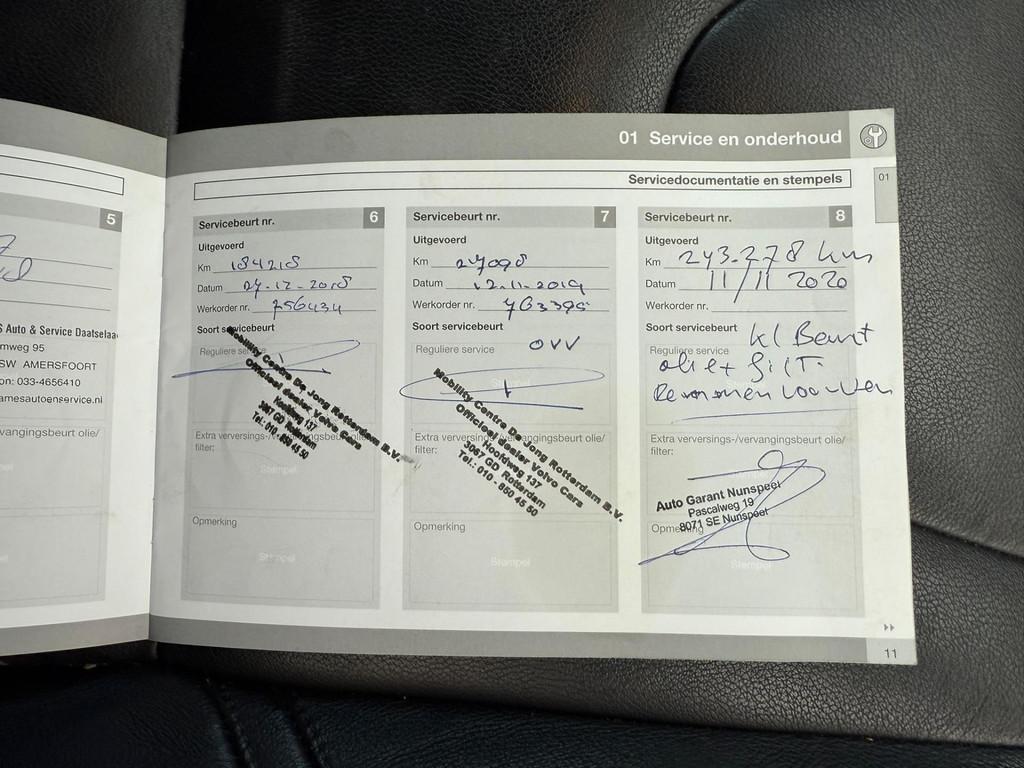 01 Service en onderhoud
Servicedocumentatie en stempels
01
5
S Auto & Service Daatselaa
mweg 95
SW AMERSFOORT
on: 033-4656410
amesautoenservice.nl
vangingsbeurt olie/
Servicebeurt nr. 6
Uitgevoerd
Km 184218
Datum 27-12-2018
Werkorder nr. 756434
Soort servicebeurt
Reguliere service
Mobility Centre De Jong Rotterdam B.V.
Officieel dealer Volvo Cars
Hoofdweg 137
3067 GD Rotterdam
Tel.: 010 - 850 45 50
Extra verversings-/vervangingsbeurt olie/
filter:
Stempel
Opmerking
Stempel
Servicebeurt nr. 7
Uitgevoerd
Km
Datum 12-11-2019
Werkorder nr. 763395
Soort servicebeurt
Reguliere service OVV
Stempel
Mobility Centre De Jong Rotterdam B.V.
Officieel dealer Volvo Cars
Hoofdweg 137
3067 GD Rotterdam
Tel.: 010 - 850 45 50
Extra verversings-/vervangingsbeurt olie/
filter:
Opmerking
Stempel
Servicebeurt nr. 8
Uitgevoerd
Km 243.278 km
Datum 11/11 2020
Werkorder nr.
Soort servicebeurt kl Beurt
Reguliere service
olie + filt.
Remmen
Extra verversings-/vervangingsbeurt olie/
filter:
Auto Garant Nunspeet
Pascalweg 19
8071 SE Nunspeet
Opmerking
Stempel
11